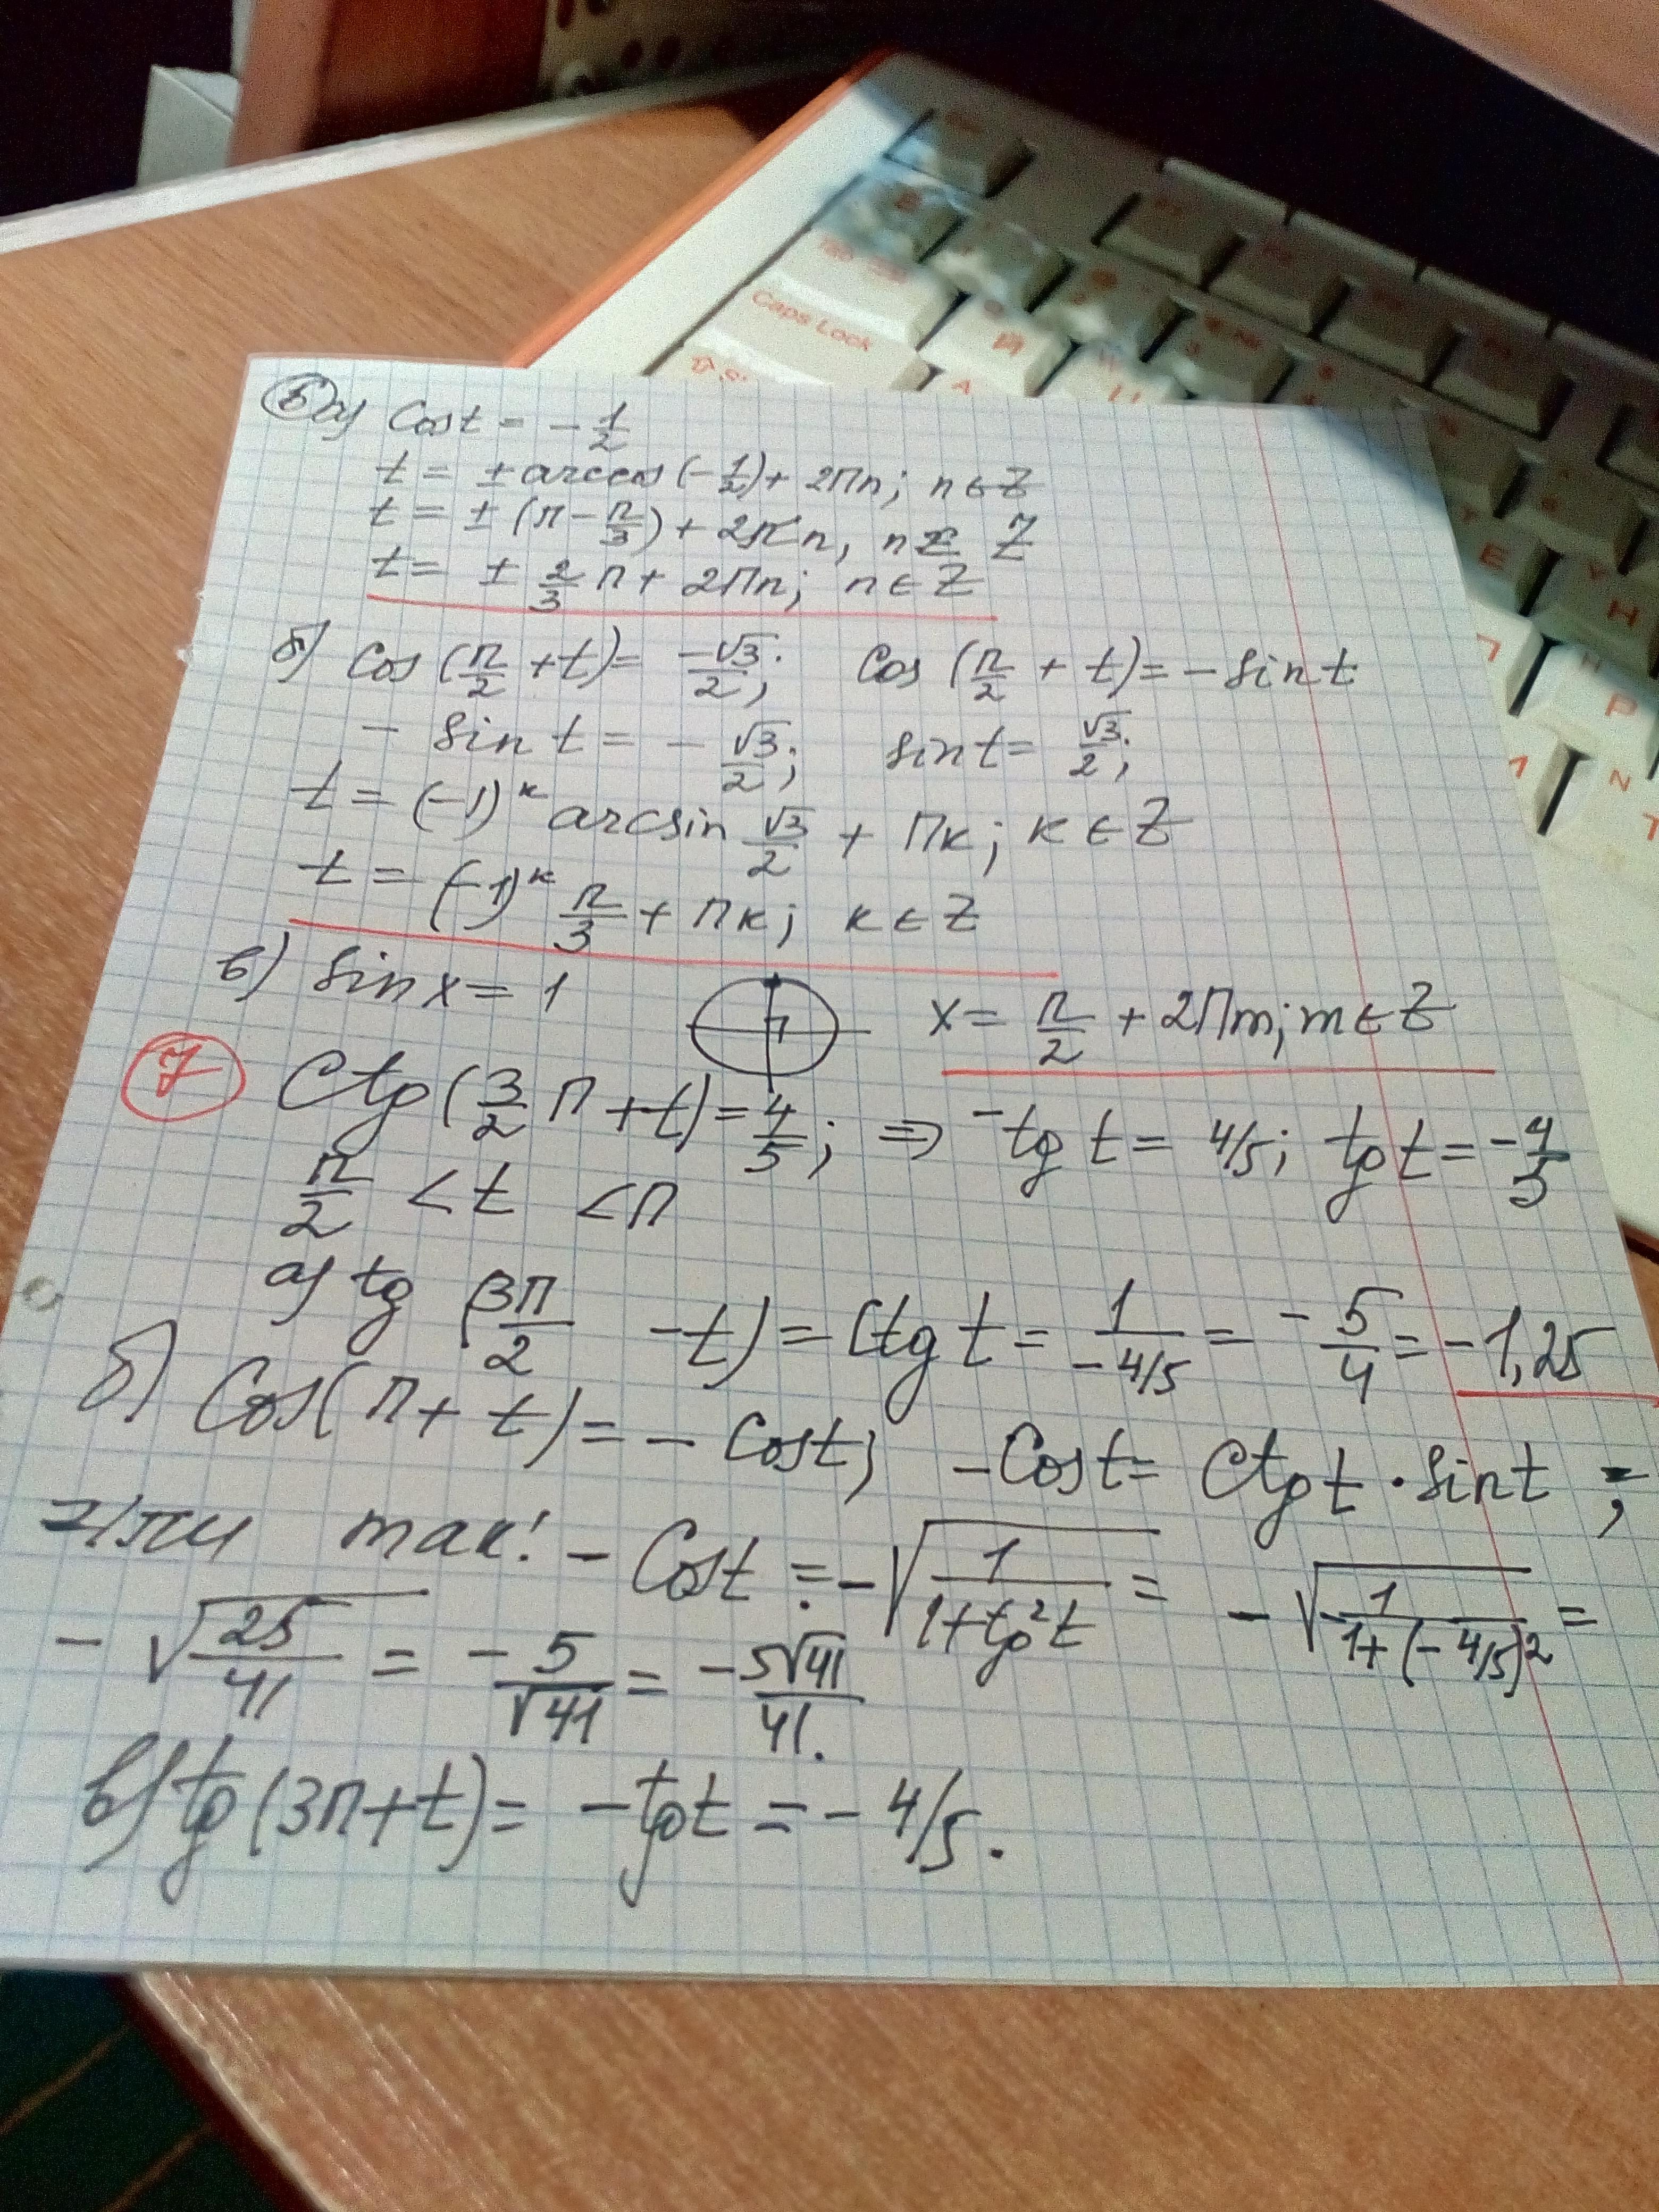 Caps Lock
6 а) Cos t = -1/2
t = ± arccos(-1/2) + 2Пn; n ∈ Z
t = ± (π - π/3) + 2πn, n ∈ Z
t = ± 2/3 П + 2Пn; n ∈ Z
б) Cos (π/2 + t) = -√3/2; Cos (π/2 + t) = - sin t
- sin t = - √3/2; sin t = √3/2;
t = (-1)^к arcsin √3/2 + Пк; к ∈ Z
t = (-1)^к π/3 + Пк; к ∈ Z
в) sin x = 1 x = π/2 + 2Пm; m ∈ Z
7 Ctg (3/2 П + t) = 4/5; ⇒ -tg t = 4/5; tg t = -4/5
π/2 < t < П
а) tg (3П/2 - t) = Ctg t = 1/(-4/5) = -5/4 = -1,25
б) Cos(П + t) = - Cos t; - Cos t = Ctg t · sin t ;
Или так! - Cos t = -√(1/(1+tg²t)) = -√(1/(1+(-4/5)²)) =
- √(25/41) = -5/√41 = -5√41/41.
в) tg (3П + t) = - tg t = - 4/5.